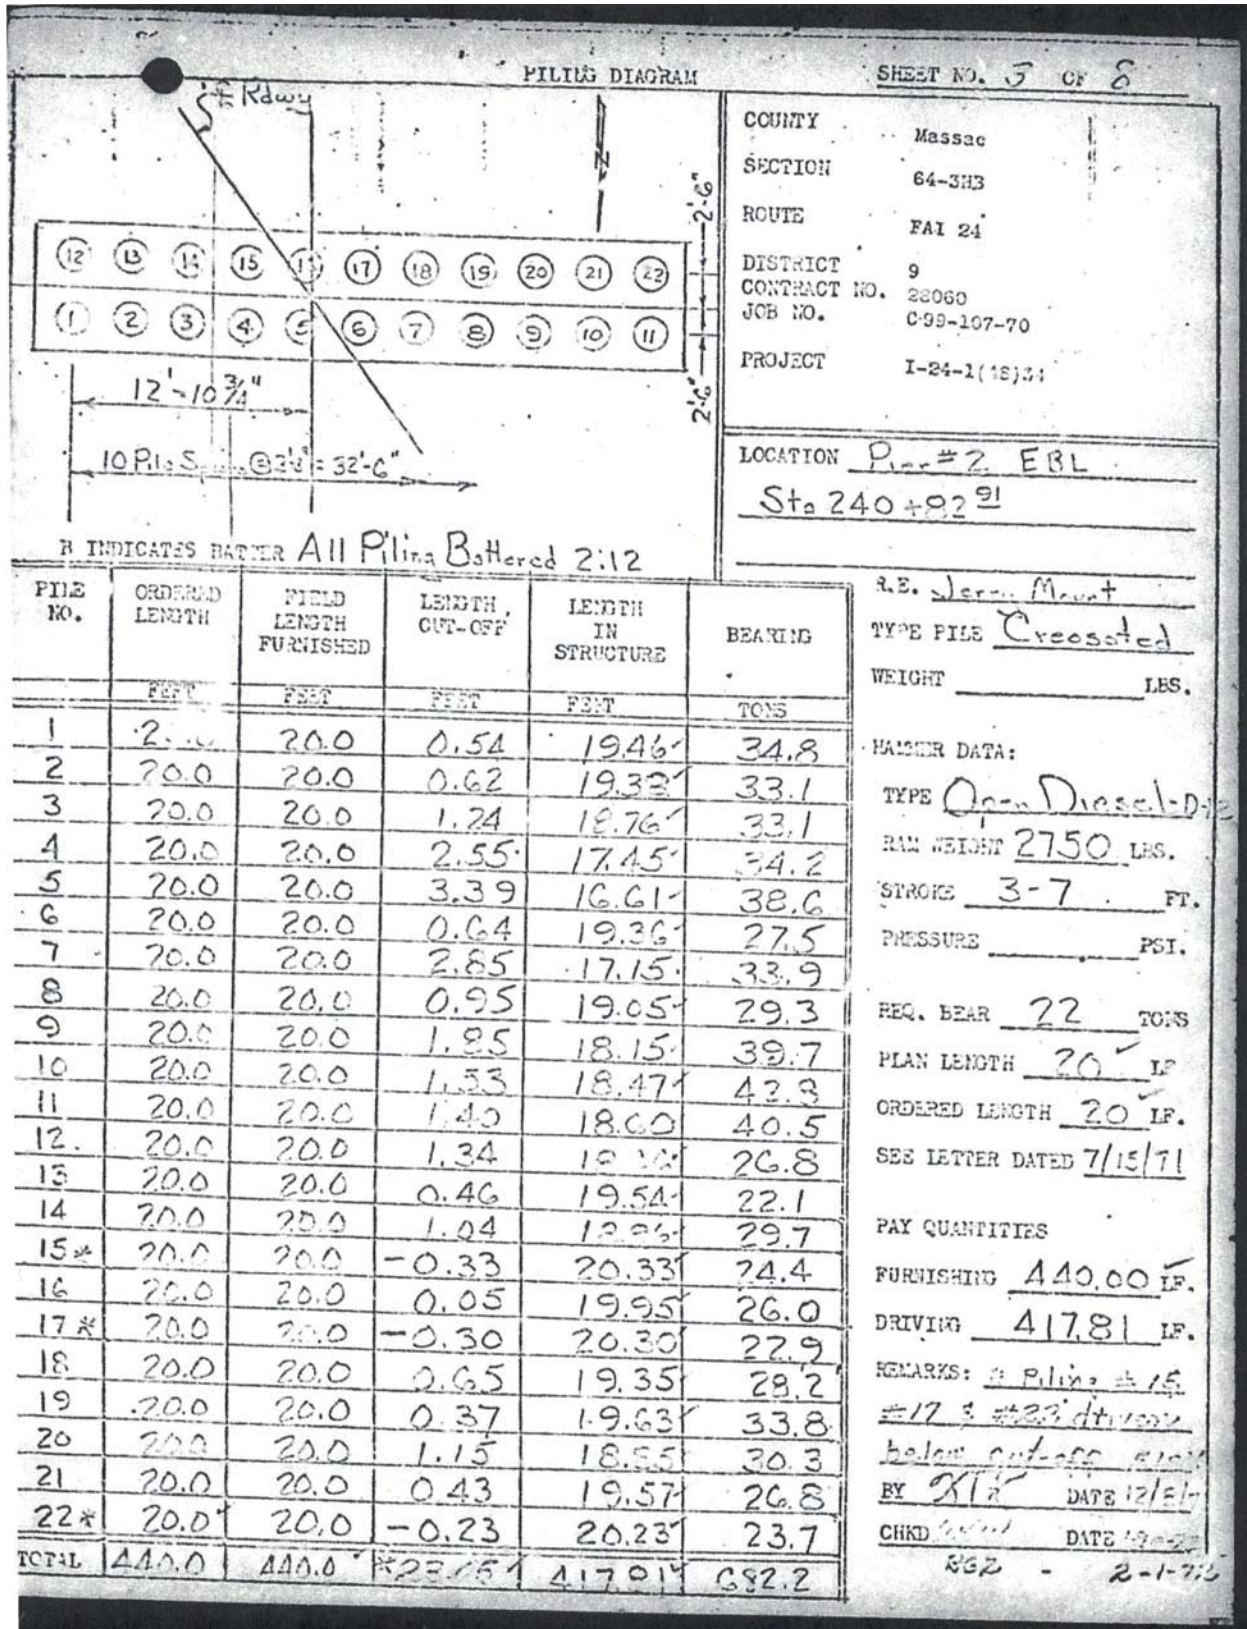 PILING DIAGRAM
SHEET NO. 5 OF 8
℄ Rdwy
N
COUNTY Massac
SECTION 64-3H3
ROUTE FAI 24
DISTRICT 9
CONTRACT NO. 28060
JOB NO. C-99-107-70
PROJECT I-24-1(48)34
12 13 14 15 16 17 18 19 20 21 22
1 2 3 4 5 6 7 8 9 10 11
2'-6"
2'-6"
12'-10 3/4"
10 Pile @ = 32'-6"
LOCATION Pier #2 EBL
Sta 240+82 91
B INDICATES BATTER All Piling Battered 2:12
PILE NO. ORDERED LENGTH FIELD LENGTH FURNISHED LENGTH CUT-OFF LENGTH IN STRUCTURE BEARING
FEET FEET FEET FEET TONS
1 20.0 0.54 19.46 34.8
2 20.0 20.0 0.62 19.38 33.1
3 20.0 20.0 1.24 18.76 33.1
4 20.0 20.0 2.55 17.45 34.2
5 20.0 20.0 3.39 16.61 38.6
6 20.0 20.0 0.64 19.36 27.5
7 20.0 20.0 2.85 17.15 33.9
8 20.0 20.0 0.95 19.05 29.3
9 20.0 20.0 1.85 18.15 39.7
10 20.0 20.0 1.53 18.47 42.3
11 20.0 20.0 1.40 18.60 40.5
12. 20.0 20.0 1.34 26.8
13 20.0 20.0 0.46 19.54 22.1
14 20.0 20.0 1.04 18.96 29.7
15* 20.0 20.0 -0.33 20.33 24.4
16 20.0 20.0 0.05 19.95 26.0
17* 20.0 20.0 -0.30 20.30 22.9
18 20.0 20.0 0.65 19.35 28.2
19 20.0 20.0 0.37 19.63 33.8
20 20.0 20.0 1.15 18.85 30.3
21 20.0 20.0 0.43 19.57 26.8
22* 20.0 20.0 -0.23 20.23 23.7
TOTAL 440.0 440.0 417.81 682.2
R.E. Mount
TYPE PILE Creosoted
WEIGHT LBS.
HAMMER DATA:
TYPE Open Diesel-D-12
RAM WEIGHT 2750 LBS.
STROKE 3-7 FT.
PRESSURE PSI.
REQ. BEAR 22 TONS
PLAN LENGTH 20 LF
ORDERED LENGTH 20 LF.
SEE LETTER DATED 7/15/71
PAY QUANTITIES
FURNISHING 440.00 LF.
DRIVING 417.81 LF.
REMARKS: * Piling #15
#17 & driven
below cut-off
BY DATE
CHKD DATE
2-1-72